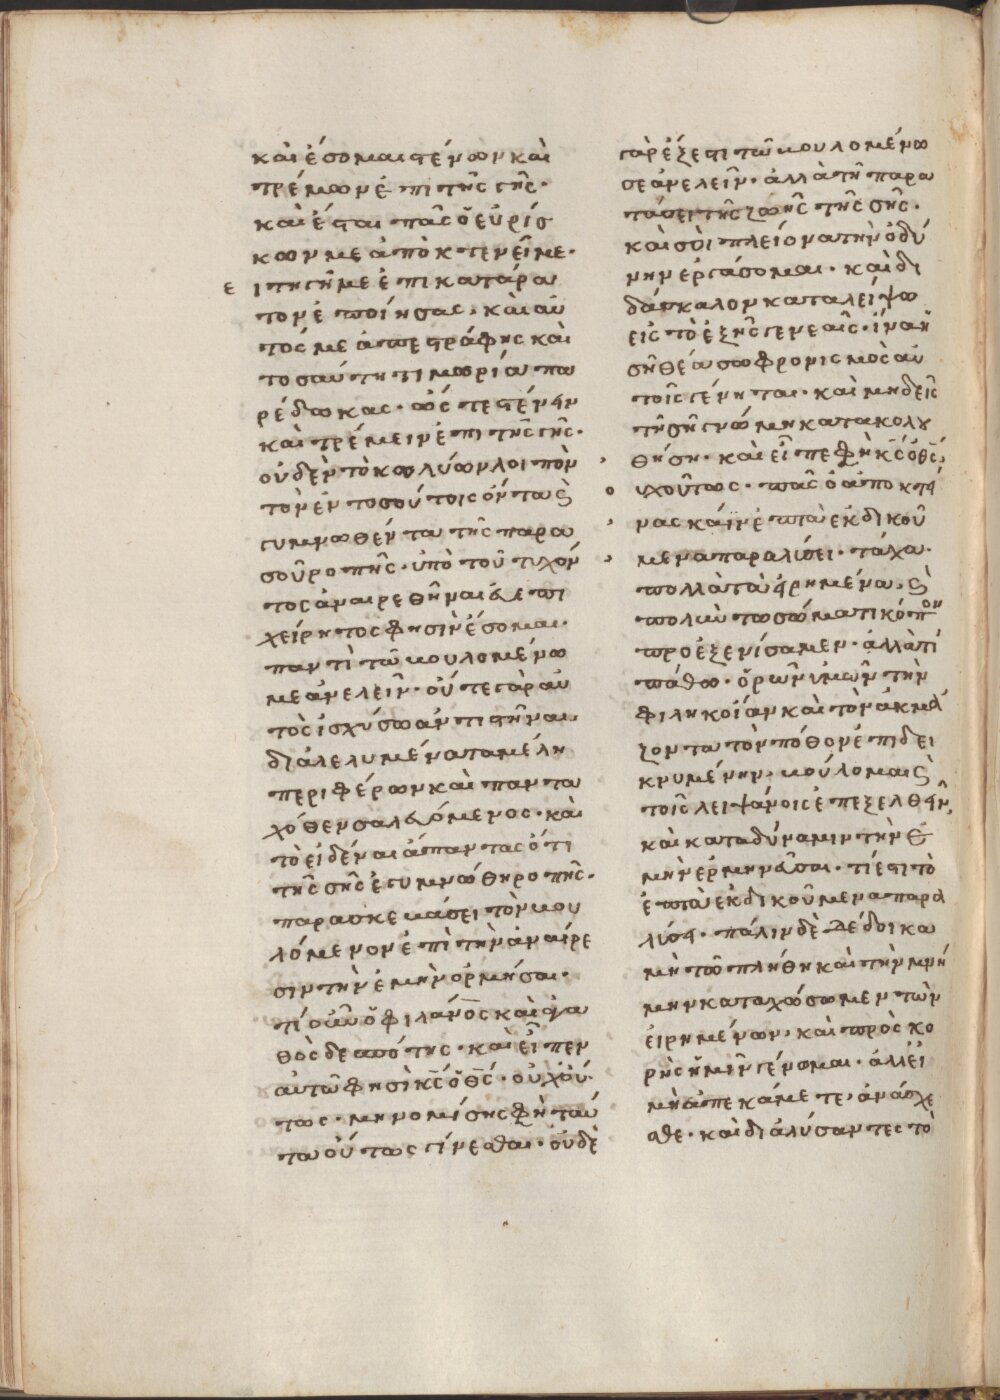 καὶ ἔσομαι στένων καὶ
τρέμων ἐπὶ τῆς γῆς·
καὶ ἔσται πᾶς ὁ εὑρίσ
κων με ἀποκτενεῖ με·
ε ι τῆ γῆ με ἐπικατάρα
τον ἐποίησας, καὶ αὐ
τός με ἀπεστράφης καὶ
τοσαύτη τιμωρία πα
ρέδωκας· ὥς τε στένειν
καὶ τρέμειν ἐπὶ τῆς γῆς·
οὐδὲν τὸ κωλύων λοιπὸν
τὸν ἐν τοσούτοις ὄντα ϗ
γυμνωθέντα τῆς παρα
σοῦ ροπῆς· ὑπὸ τοῦ τυχόν
τος ἀναιρεθῆναι εὐεπι
χείρητος φησὶν ἔσομαι·
παντὶ τῶ βουλομένω
με ἀνελεῖν· οὔτε γὰρ αὐ
τὸς ἰσχύσω ἀντιστῆναι
διαλελυμένα τα μέλη
περιφέρων καὶ παντα
χόθεν σαλευόμενος· καὶ
τὸ εἰδέναι ἅπαντας ὅτι
τῆς σῆς ἐγυμνώθην ροπῆς·
παρασκευάσει τὸν βου
λόμενον ἐπὶ τὴν ἀναίρε
σιν τὴν ἐμὴν ὁρμῆσαι·
τί οὖν ὁ φιλάνος καὶ ἀγα
θὸς δεσπότης· καὶ εἶπεν
αὐτῶ φησὶ κς ὁ θς· οὐχ οὕ
τως· μὴ νομίσης φὴ ταῦ
τα οὕτως γίνεσθαι· οὐδὲ
γὰρ ἔξεστι τῶ βουλομένω
σε ἀνελεῖν· ἀλλὰ τῆ παρα
τάσει τῆς ζωῆς τῆς σῆς·
καὶ σοὶ πλείονα τὴν ὀδύ
νην ἐργάσομαι· καὶ δι
δάσκαλον καταλείψω
εἰς τὸ ἑξῆς γενεαῖς· ἵνα ἡ
σὴ θέα σωφρονισμὸς αὐ
τοῖς γένηται· καὶ μηδεὶς
τῆ σῆ γνώμη κατακολου
θήση· καὶ εἶπε φὴ κς ὁ θς,
οὐχ οὕτως· πᾶς ὁ ἀποκτεί
νας κάϊν ἑπτὰ ἐκδικοῦ
μενα παραλύσει· τάχα
πολλὰ τὰ εἰρημένα, ϗ
πολὺν τὸ σωματικόπον
προεξενίσαμεν· ἀλλὰ τί
πάθω· ὁρῶν ὑμῶν τὴν
φιληκοΐαν καὶ τὸν ἀκμά
ζοντα τὸν πόθον ἐπιδει
κνυμένην, βούλομαι ϗ
τοῖς λειψάνοις ἐπεξελθεῖν,
καὶ κατα δύναμιν τὴν ἐ
μὴν ἑρμηνεῦσαι· τί ἐστι τὸ
ἑπτὰ ἐκδικοῦμενα παρα
λύσει· πάλιν δὲ δέδοικα
μὴ τῶ πλήθη καὶ τὴν μνή
μην καταχώσωμεν τῶν
εἰρημένων· καὶ πρὸς κό
ρης ἡμῖν γένωμαι· ἀλλ' εἰ
μὴ ἀπεκάμετε, ἀνάσχε
σθε· καὶ διαλύσαντες τὸ